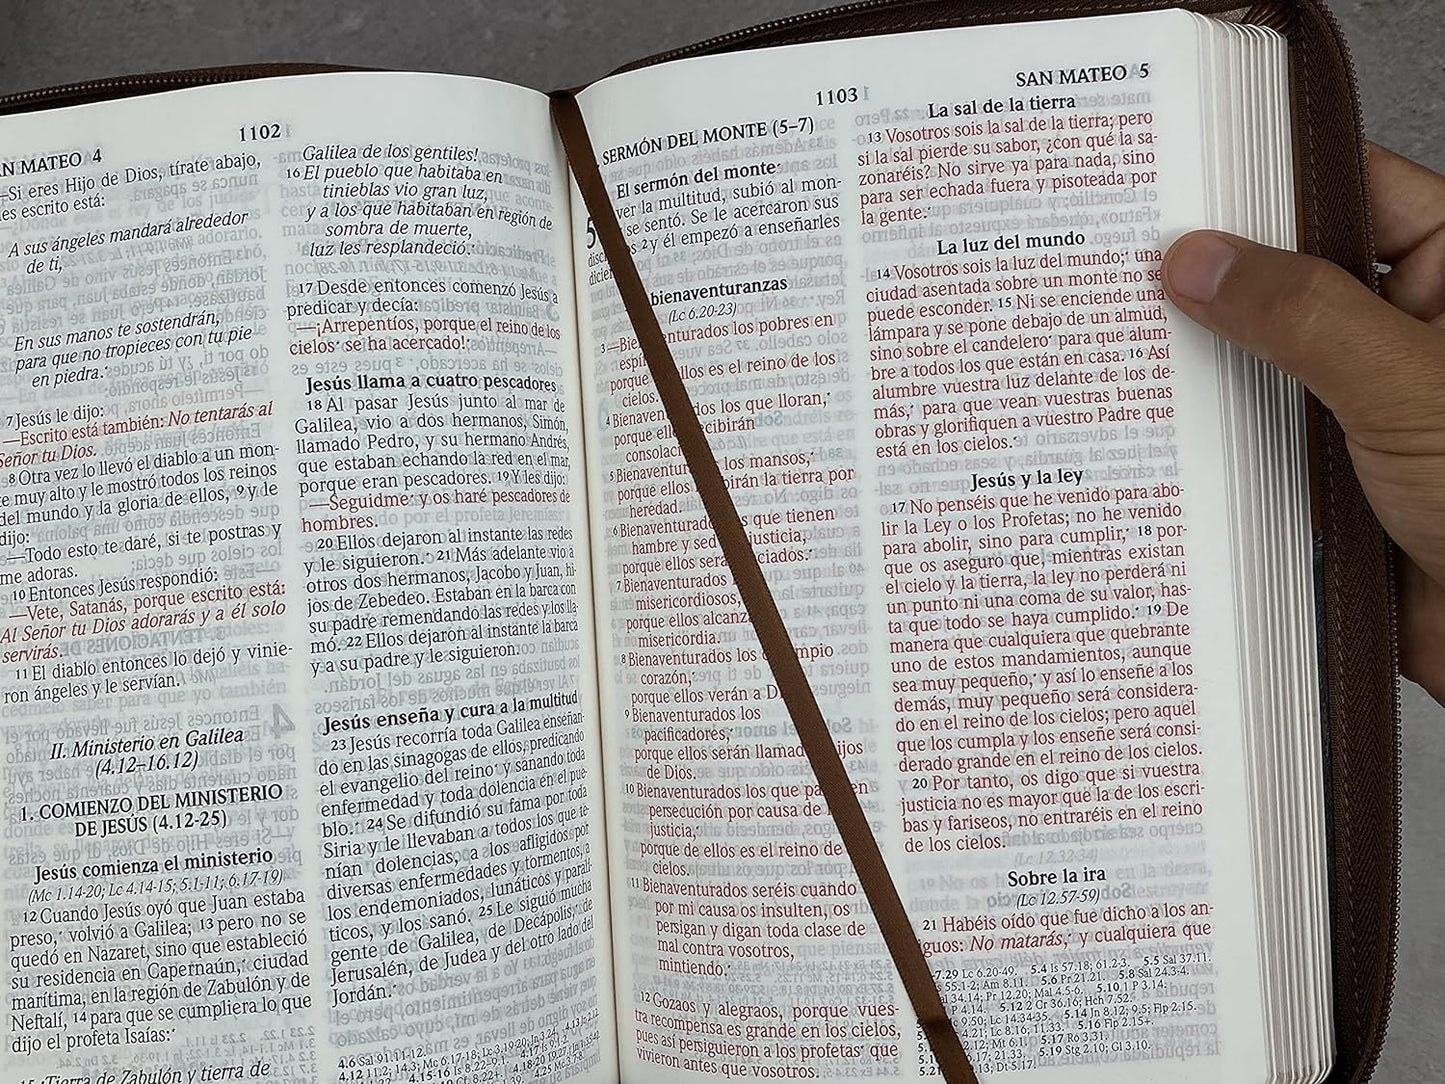 1102
AN MATEO 4
—Si eres Hijo de Dios, tírate abajo,
es escrito está:
A sus ángeles mandará alrededor
de ti,
En sus manos te sostendrán,
para que no tropieces con tu pie
en piedra.
7 Jesús le dijo:
—Escrito está también: No tentarás al
Señor tu Dios.
8 Otra vez lo llevó el diablo a un mon-
te muy alto y le mostró todos los reinos
del mundo y la gloria de ellos, 9 y le
dijo:
—Todo esto te daré, si te postras y
me adoras.
10 Entonces Jesús respondió:
—Vete, Satanás, porque escrito está:
Al Señor tu Dios adorarás y a él solo
servirás.
11 El diablo entonces lo dejó y vinie-
ron ángeles y le servían.
II. Ministerio en Galilea
(4.12–16.12)
1. COMIENZO DEL MINISTERIO
DE JESÚS (4.12-25)
Jesús comienza el ministerio
(Mc 1.14-20; Lc 4.14-15; 5.1-11; 6.17-19)
12 Cuando Jesús oyó que Juan estaba
preso, volvió a Galilea; 13 pero no se
quedó en Nazaret, sino que estableció
su residencia en Capernaún, ciudad
marítima, en la región de Zabulón y de
Neftalí, 14 para que se cumpliera lo que
dijo el profeta Isaías:
15 ¡Tierra de Zabulón y tierra de
Galilea de los gentiles!
16 El pueblo que habitaba en
tinieblas vio gran luz,
y a los que habitaban en región de
sombra de muerte,
luz les resplandeció.
17 Desde entonces comenzó Jesús a
predicar y decía:
—¡Arrepentíos, porque el reino de los
cielos se ha acercado!
Jesús llama a cuatro pescadores
18 Al pasar Jesús junto al mar de
Galilea, vio a dos hermanos, Simón,
llamado Pedro, y su hermano Andrés,
que estaban echando la red en el mar,
porque eran pescadores. 19 Y les dijo:
—Seguidme y os haré pescadores de
hombres.
20 Ellos dejaron al instante las redes
y le siguieron. 21 Más adelante vio a
otros dos hermanos, Jacobo y Juan, hi-
jos de Zebedeo. Estaban en la barca con
su padre remendando las redes y los lla-
mó. 22 Ellos dejaron al instante la barca
y a su padre y le siguieron.
Jesús enseña y cura a la multitud
23 Jesús recorría toda Galilea enseñan-
do en las sinagogas de ellos, predicando
el evangelio del reino y sanando toda
enfermedad y toda dolencia en el pue-
blo. 24 Se difundió su fama por toda
Siria y le llevaban a todos los que te-
nían dolencias, a los afligidos por
diversas enfermedades y tormentos, a
los endemoniados, lunáticos y paralí-
ticos, y los sanó. 25 Le siguió mucha
gente de Galilea, de Decápolis, de
Jerusalén, de Judea y del otro lado del
Jordán.
4.6 Sal 91.11-12.
1103
SAN MATEO 5
SERMÓN DEL MONTE (5–7)
El sermón del monte
5 ver la multitud, subió al mon-
se sentó. Se le acercaron sus
2 y él empezó a enseñarles
bienaventuranzas
(Lc 6.20-23)
3 —Bienaventurados los pobres en
espí
porque ellos es el reino de los
cielos.
4 Bienaventurados los que lloran,
porque ellos recibirán
consolac
5 Bienaventurados los mansos,
porque ellos recibirán la tierra por
heredad.
6 Bienaventurados los que tienen
hambre y sed de justicia,
porque ellos serán saciados.
7 Bienaventurados
misericordiosos,
porque ellos alcanza
misericordia.
8 Bienaventurados los limpio
corazón,
porque ellos verán a D
9 Bienaventurados los
pacificadores,
porque ellos serán llamados hijos
de Dios.
10 Bienaventurados los que padecen
persecución por causa de
justicia,
porque de ellos es el reino de
cielos.
11 Bienaventurados seréis cuando
por mi causa os insulten, os
persigan y digan toda clase de
mal contra vosotros,
mintiendo.
12 Gozaos y alegraos, porque vues-
tra recompensa es grande en los cielos,
pues así persiguieron a los profetas que
vivieron antes que vosotros.
La sal de la tierra
13 Vosotros sois la sal de la tierra; pero
si la sal pierde su sabor, ¿con qué la sa-
zonaréis? No sirve ya para nada, sino
para ser echada fuera y pisoteada por
la gente.
La luz del mundo
14 Vosotros sois la luz del mundo; una
ciudad asentada sobre un monte no se
puede esconder. 15 Ni se enciende una
lámpara y se pone debajo de un almud,
sino sobre el candelero para que alum-
bre a todos los que están en casa. 16 Así
alumbre vuestra luz delante de los de-
más, para que vean vuestras buenas
obras y glorifiquen a vuestro Padre que
está en los cielos.
Jesús y la ley
17 No penséis que he venido para abo-
lir la Ley o los Profetas; no he venido
para abolir, sino para cumplir, 18 por-
que os aseguro que, mientras existan
el cielo y la tierra, la ley no perderá ni
un punto ni una coma de su valor, has-
ta que todo se haya cumplido. 19 De
manera que cualquiera que quebrante
uno de estos mandamientos, aunque
sea muy pequeño, y así lo enseñe a los
demás, muy pequeño será considera-
do en el reino de los cielos; pero aquel
que los cumpla y los enseñe será consi-
derado grande en el reino de los cielos.
20 Por tanto, os digo que si vuestra
justicia no es mayor que la de los escri-
bas y fariseos, no entraréis en el reino
de los cielos.
Sobre la ira
(Lc 12.57-59)
21 Habéis oído que fue dicho a los an-
iguos: No matarás, y cualquiera que